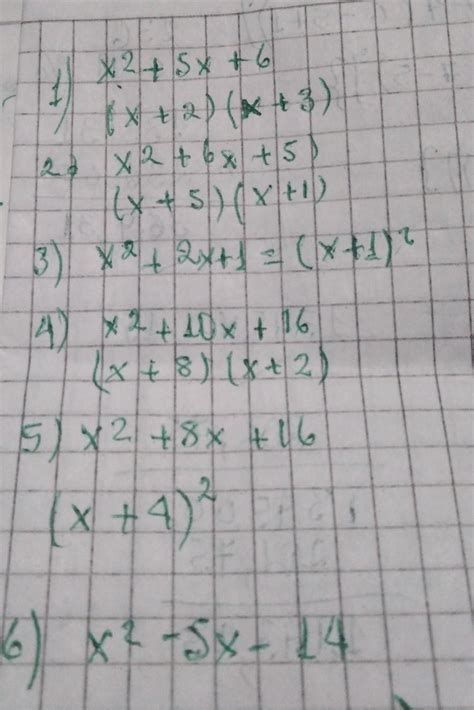 1) x2 + 5x + 6
(x + 2) (x + 3)
2) x2 + 6x + 5)
(x + 5) (x + 1)
3) x2 + 2x+1 = (x+1)²
4) x2 + 10x + 16
(x + 8) (x + 2)
5) x2 + 8x + 16
(x + 4)²
6) x2 - 5x - 14